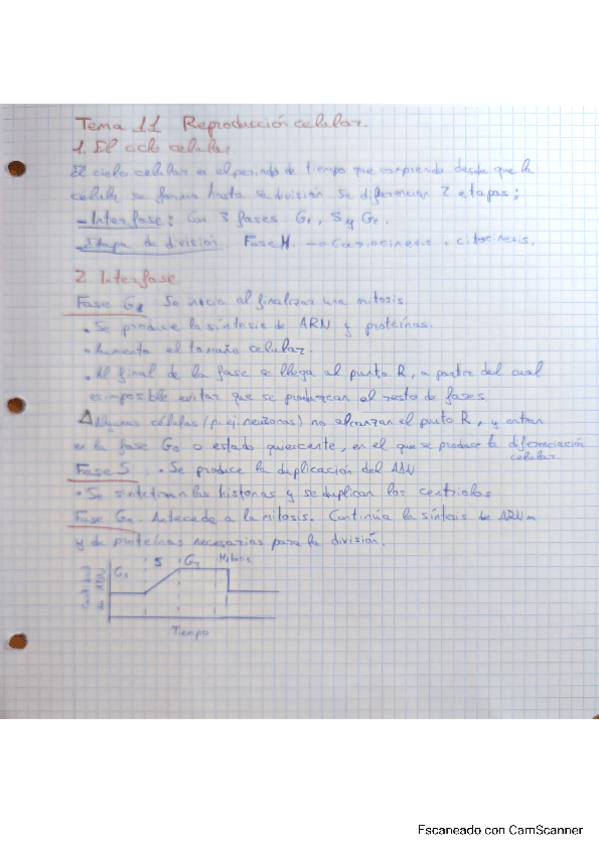 Tema 11 Reproducción celular.
1. El ciclo celular.
El ciclo celular es el periodo de tiempo que comprende desde que la
célula se forma hasta su división. Se diferencian 2 etapas:
- Interfase: Con 3 fases: G₁, S y G₂.
- Etapa de división. Fase M. → Cariocinesis + citocinesis.
2. Interfase
Fase G₁ Se inicia al finalizar una mitosis.
• Se produce la síntesis de ARN y proteínas.
• Aumenta el tamaño celular.
• Al final de la fase se llega al punto R, a partir del cual
es imposible evitar que se produzcan el resto de fases.
Algunas células (p. ej. neuronas) no alcanzan el punto R, y entran
en la fase G₀ o estado quiescente, en el que se produce la diferenciación
celular.
Fase S. • Se produce la duplicación del ADN
• Se sintetizan las histonas y se duplican los centriolos
Fase G₂. Antecede a la mitosis. Continúa la síntesis de ARNm
y de proteínas necesarias para la división.
G₁ S G₂ Mitosis
Cantidad
de ADN
Tiempo
Escaneado con CamScanner